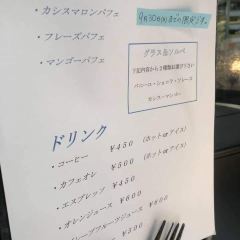 ・カシスマロンパフェ
・フレーズパフェ
・マンゴーパフェ
9月30日(月)までの限定です。
グラス缶ソルベ
下記内容から2種類お選び下さい
バニーユ・ショコラ・フレーズ
カシス・マンゴー
ドリンク
・コーヒー ¥450 (ホットorアイス)
・カフェオレ ¥500 (ホットorアイス)
・エスプレッソ ¥450
・オレンジジュース ¥600
グレープフルーツジュース ¥600